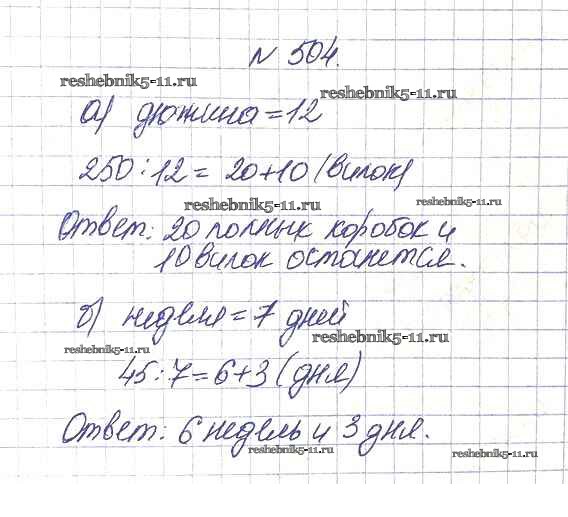 N 504.
reshebnik5-11.ru
reshebnik5-11.ru
а) дюжина = 12
250 : 12 = 20 + 10 (вилок)
reshebnik5-11.ru
reshebnik5-11.ru
Ответ: 20 полных коробок и
10 вилок останется.
б) неделя = 7 дней
reshebnik5-11.ru
reshebnik5-11.ru
45 : 7 = 6 + 3 (дня)
Ответ: 6 недель и 3 дня.
reshebnik5-11.ru
reshebnik5-11.ru